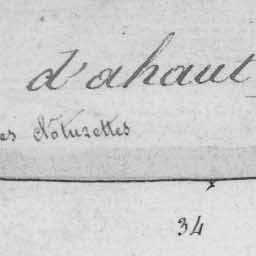 d'ahaut
es Noluzettes
34